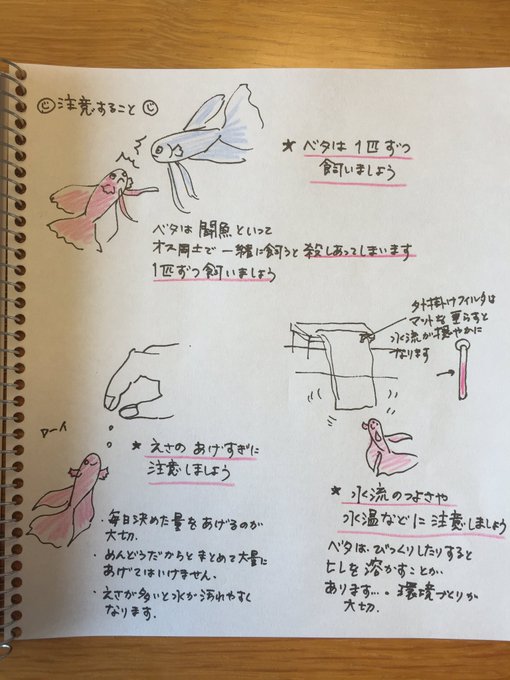 注意すること
★ ベタは1匹ずつ
飼いましょう
ベタは闘魚といって
オス同士で一緒に飼うと殺しあってしまいます
1匹ずつ飼いましょう
外掛けフィルタは
マットを垂らすと
水流が穏やかに
なります
わーい
★ えさのあげすぎに
注意しましょう
・毎日決めた量をあげるのが
大切.
・めんどうだからとまとめて大量に
あげてはいけません.
・えさが多いと水が汚れやすく
なります.
★ 水流のつよさや
水温などに注意しましょう
ベタは、びっくりしたりすると
ヒレを溶かすことが
あります…。環境づくりが
大切.